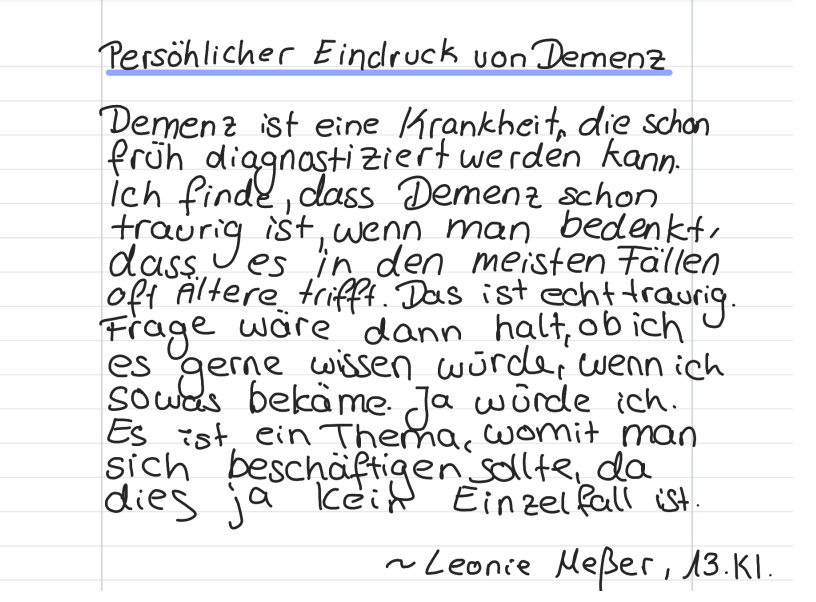 Persöhlicher Eindruck von Demenz
Demenz ist eine Krankheit, die schon
früh diagnostiziert werden kann.
Ich finde, dass Demenz schon
traurig ist, wenn man bedenkt,
dass es in den meisten Fällen
oft Ältere trifft. Das ist echt traurig.
Frage wäre dann halt, ob ich
es gerne wissen würde, wenn ich
sowas bekäme. Ja würde ich.
Es ist ein Thema, womit man
sich beschäftigen sollte, da
dies ja kein Einzelfall ist.
~ Leonie Meßer, 13.Kl.